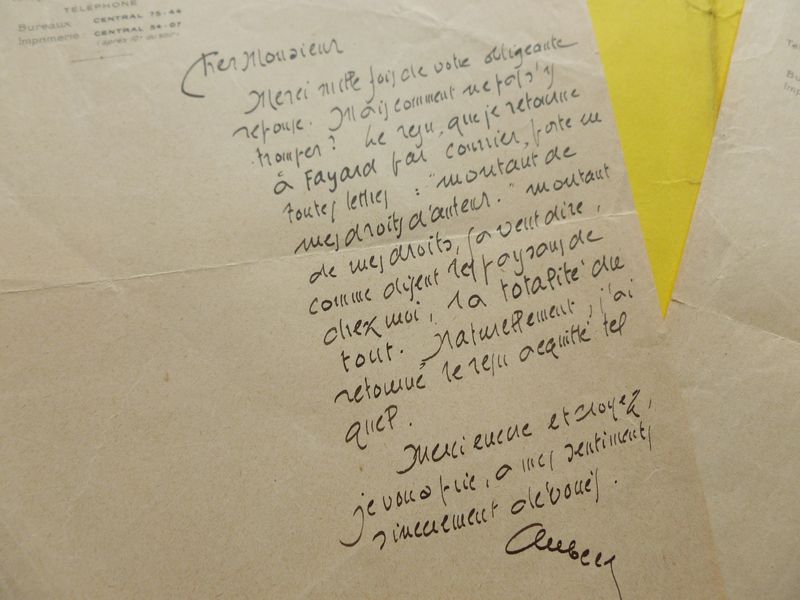 TÉLÉPHONE
Bureaux CENTRAL 75-44
Imprimerie CENTRAL 54-07
(après 10h du soir)
Cher Monsieur
Merci mille fois de votre obligeante
réponse. Mais comment ne pas s'y
tromper? Le reçu, que je retourne
à Fayard par courrier, porte en
toutes lettres : "montant de
mes droits d'auteur." Montant
de mes droits, ça veut dire,
comme disent les paysans de
chez moi, la totalité du
tout. Naturellement, j'ai
retourné le reçu acquitté tel
quel.
Merci encore et croyez,
je vous prie, à mes sentiments
sincèrement dévoués.